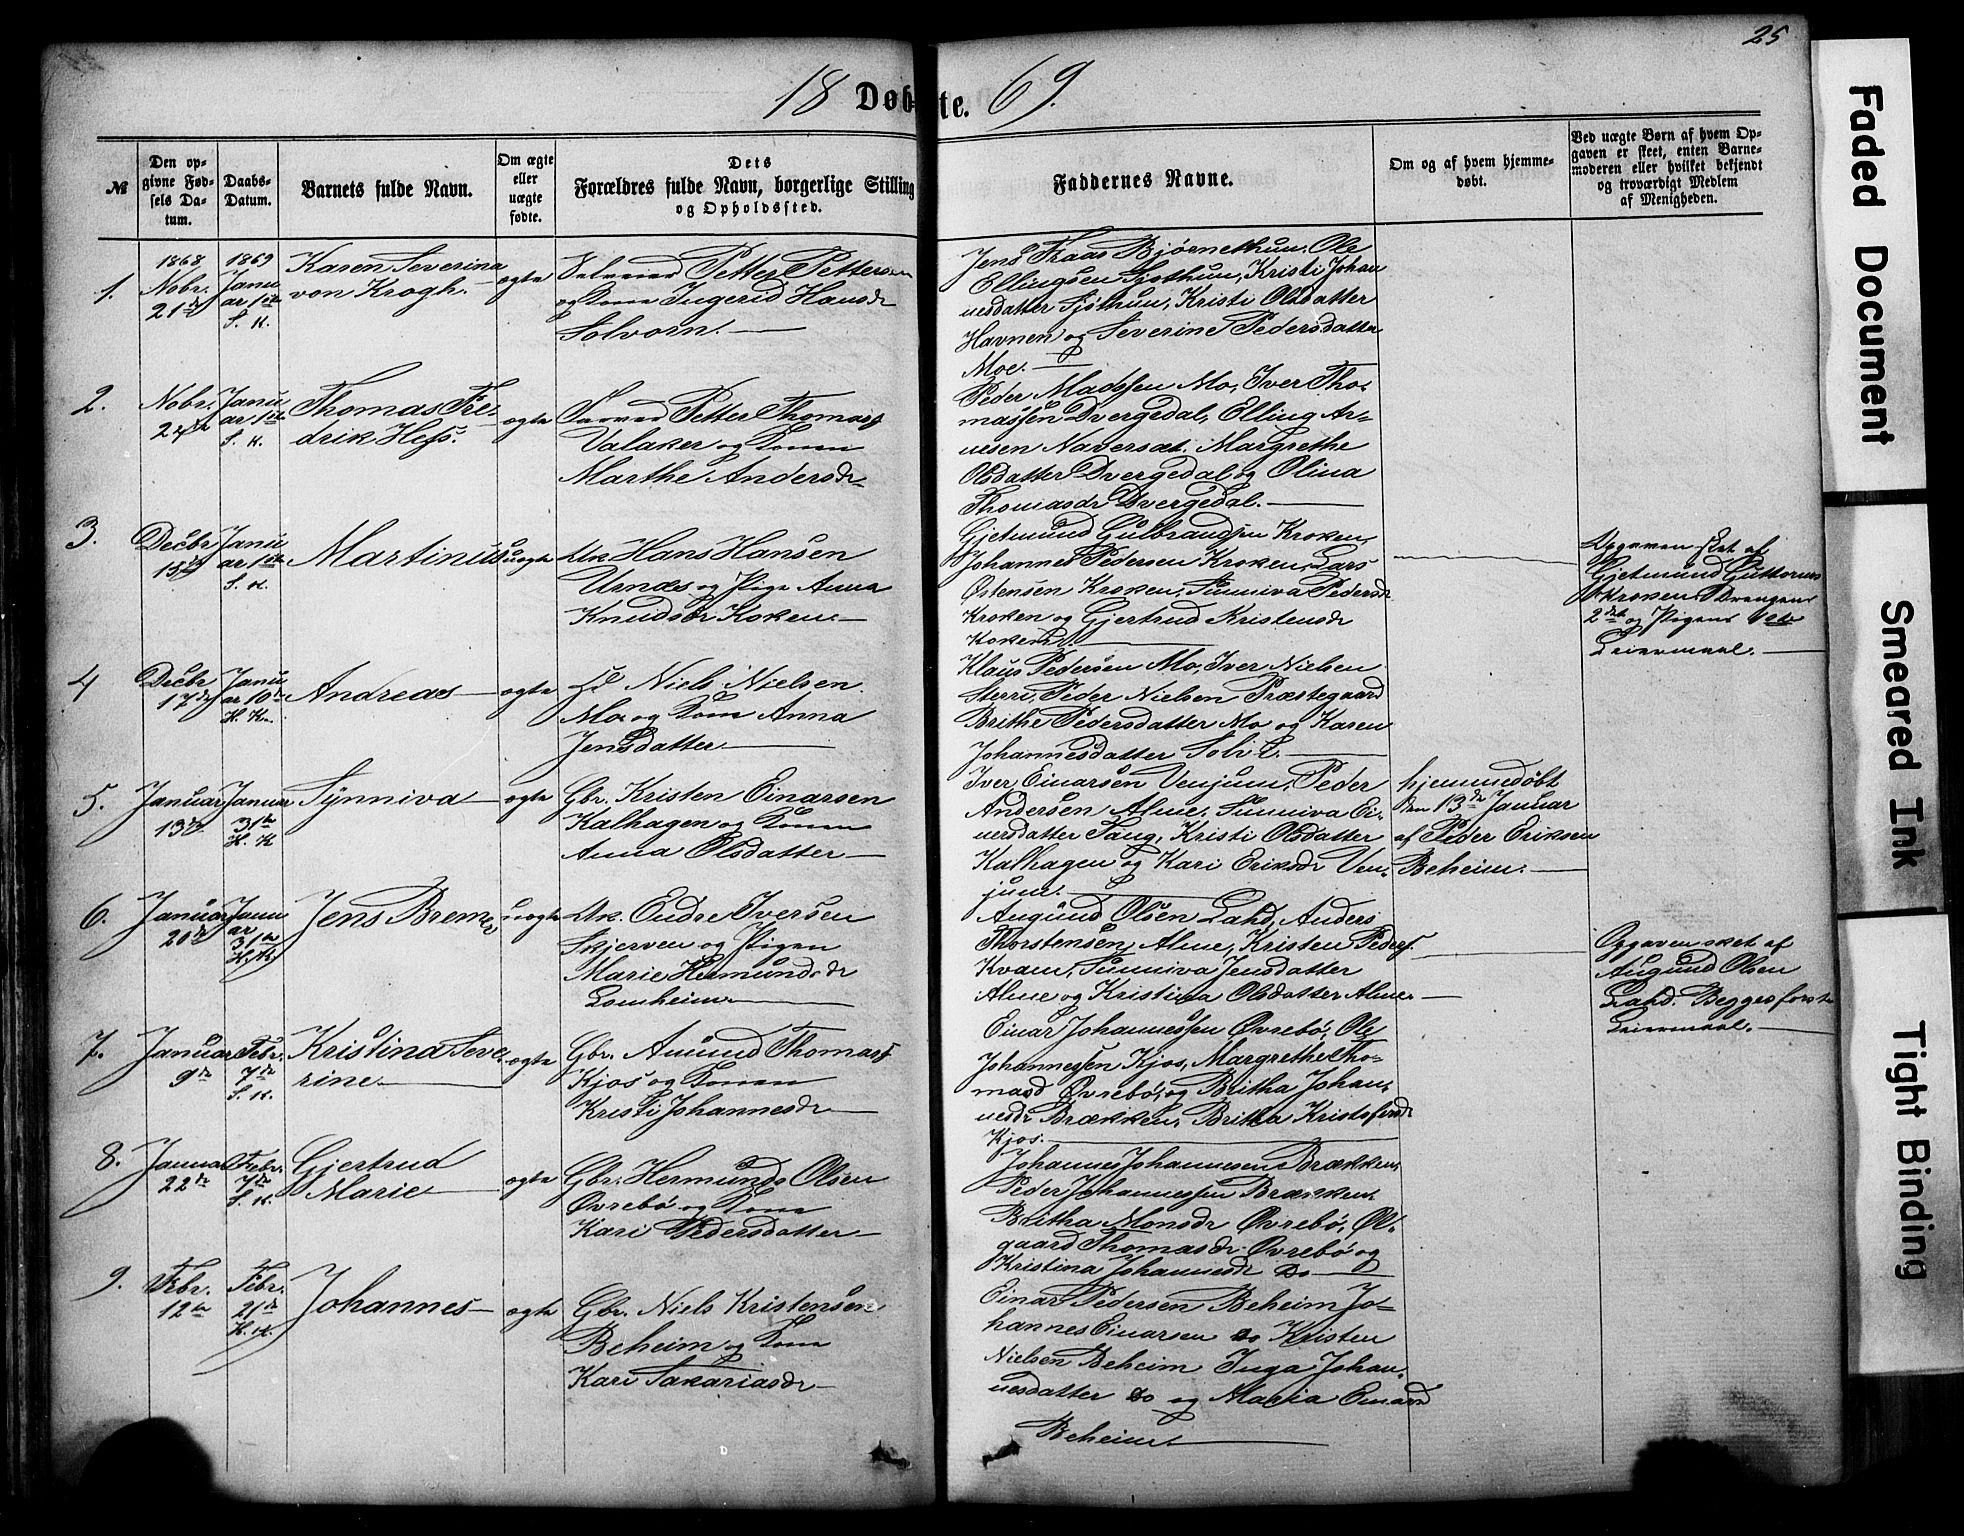 25
18 Døbte. 69.
№
Den opgivne Fødsels Datum.
Daabs-Datum.
Barnets fulde Navn.
Om ægte eller uægte fødte.
Dets Forældres fulde Navn, borgerlige Stilling og Opholdssted.
Faddernes Navne.
Om og af hvem hjemmedøbt.
Ved uægte Børn af hvem Opgaven er skeet, enten Barnemoderen eller hvilket bekjendt og troværdigt Medlem af Menigheden.
1.
1868
Nobr.
21de
1869
Janu
ar 1ste
S. K.
Karen Severina
von Krogh.
ægte
Petter Petters
og Kone Ingerid Hansdr
Solvorn.
Jens Fraas Bjørnethun, Ole
Ellingsen Sjøthun, Kristi Johan
nesdatter Sjøthun, Kristi Olsdatter
Havnen og Severine Pedersdatter
Moe.
2.
Nobr.
Janu
ar 1ste
S. K.
Thomas Fre-
drik Hess.
ægte
Petter Thomass
Valaker og Konen
Marthe Andersdr
Peder Madssen Mo, Iver Tho-
massen Dvergedal, Elling Ar-
nesen Naversæt, Margrethe
Olsdatter Dvergedal og Olina
Thomasdr Dvergedal.
3.
Decbr
Janu
ar 1ste
S. K.
Martinius
uægte
Uk Hans Hansen
Urnæs og Pige Anna
Knudsdr Kroken
Gjetmund Gulbrandsen Kroken,
Johannes Pedersen Kroken, Lars
Østensen Kroken, Sunniva Pedersdr
Kroken og Gjertrud Kristensdr
Kroken.
Opgaven sket af
Gjetmund Guttorms
Kroken. Drengens
2det og Pigens
Leiermaal.
4
Decbr
17de
Janu
ar 10de
H. K.
Andreas
ægte
Niels Nielsen
Mo og Kone Anna
Jensdatter
Klaus Pedersen Mo, Iver Nielsen
Sterre, Peder Nielsen Præstegaard
Brithe Pedersdatter Mo og Karen
Johannesdatter
5.
Januar
13de
Januar
31te
H. K
Synniva
ægte
Gbr. Kristen Einarsen
Kalhagen og Konen
Anna Olsdatter
Iver Einarsen Venjum, Peder
Andersen Alme, Sunniva Ei-
nersdatter Sang, Kristi Olsdatter
Kalhagen og Kari Eriksdr Ven-
jum.
hjemmedøbt
den 13de Januar
af Peder Eriksen
Beheim.
6.
Januar
20de
Janu
ar
31te
H. K.
Jens Bremer
uægte
Uk. Endre Iversen
Skjerven og Pigen
Marie Hermundsdr
Lomheim
Augund Olsen Lahd, Anders
Thorstensen Alme, Kristen Peders
Kvam, Sunniva Jensdatter
Alme og Kristina Olsdatter Alme
Opgaven sket af
Augund Olsen
Lahd. Begges første
Leiermaal.
7.
Januar
9de
Febr.
7de
S. K.
Kristina Seve-
rine
ægte
Gbr. Amund Thomass
Kjos og Konen
Kristi Johannesdr
Einar Johannessen Øvrebø, Ole
Johannessen Kjos, Margrethe Tho-
masd Øvrebø, og Britha Johan-
nesdr Brækken, Britha Kristofersdr
Kjos.
8.
Januar
22de
Febr.
7de
S. K.
Gjertrud
Marie
ægte
Gbr. Hermund Olsen
Øvrebø og Kone
Kari Pedersdatter
Johannes Johannesen Brækken,
Peder Johannessen Brækken,
Britha Monsdr Øvrebø, Ol-
gaard Thomasdr Øvrebø og
Kristina Johannesdr Do
9.
Febr.
12te
Febr.
21de
H. K.
Johannes
ægte
Gbr. Niels Kristensen
Beheim og Kone
Kari Sakariasdr
Einar Pedersen Beheim, Jo-
hannes Einarsen Do Kristen
Nielsen Beheim Inga Johan-
nesdatter Do og Maria Einarsd
Beheim.
Faded Document
Smeared Ink
Tight Binding